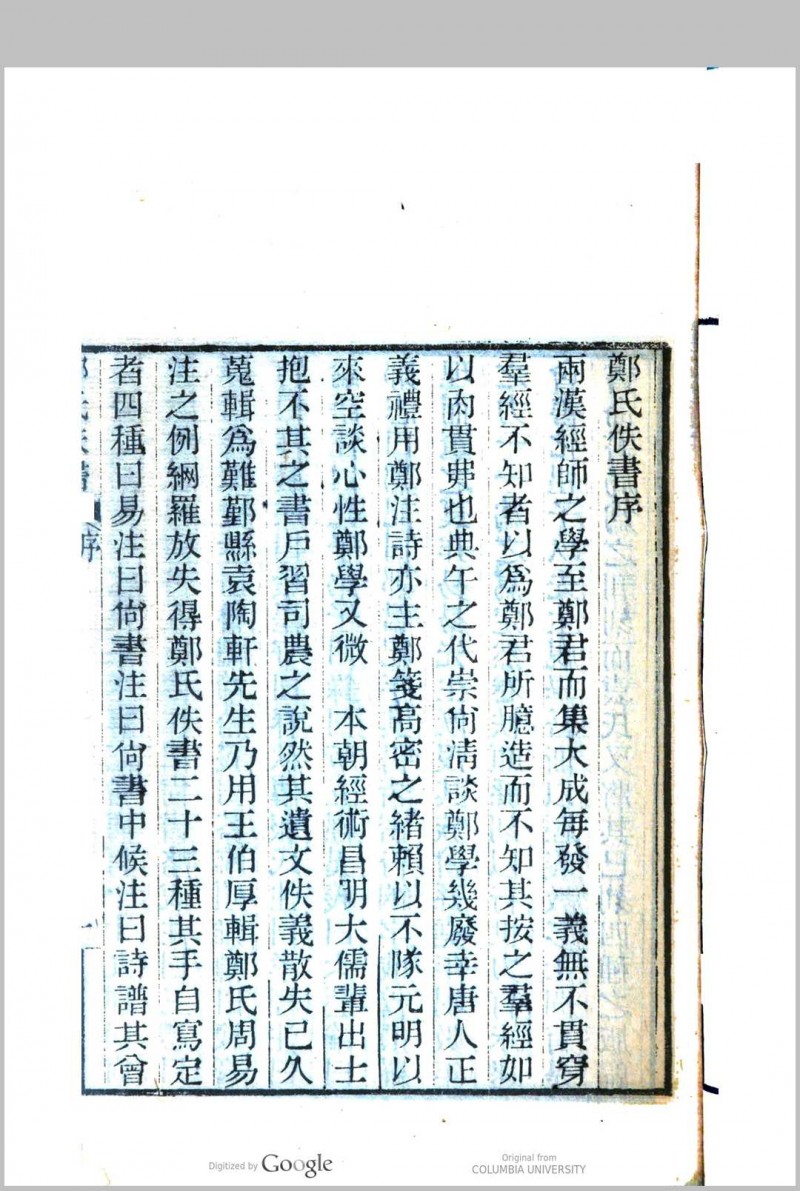 鄭氏佚書序
兩漢經師之學至鄭君而集大成每發一義無不貫穿
羣經不知者以爲鄭君所臆造而不知其按之羣經如
以肉貫丳也典午之代崇尙淸談鄭學幾廢幸唐人正
義禮用鄭注詩亦主鄭箋高密之緖賴以不隊元明以
來空談心性鄭學又微 本朝經術昌明大儒輩出士
抱不其之書戶習司農之說然其遺文佚義散失已久
蒐輯爲難鄞縣袁陶軒先生乃用王伯厚輯鄭氏周易
注之例網羅放失得鄭氏佚書二十三種其手自寫定
者四種曰易注曰尙書注曰尙書中候注曰詩譜其曾
鄭氏佚書 序 一
Digitized by Google
Original from
COLUMBIA UNIVERSITY